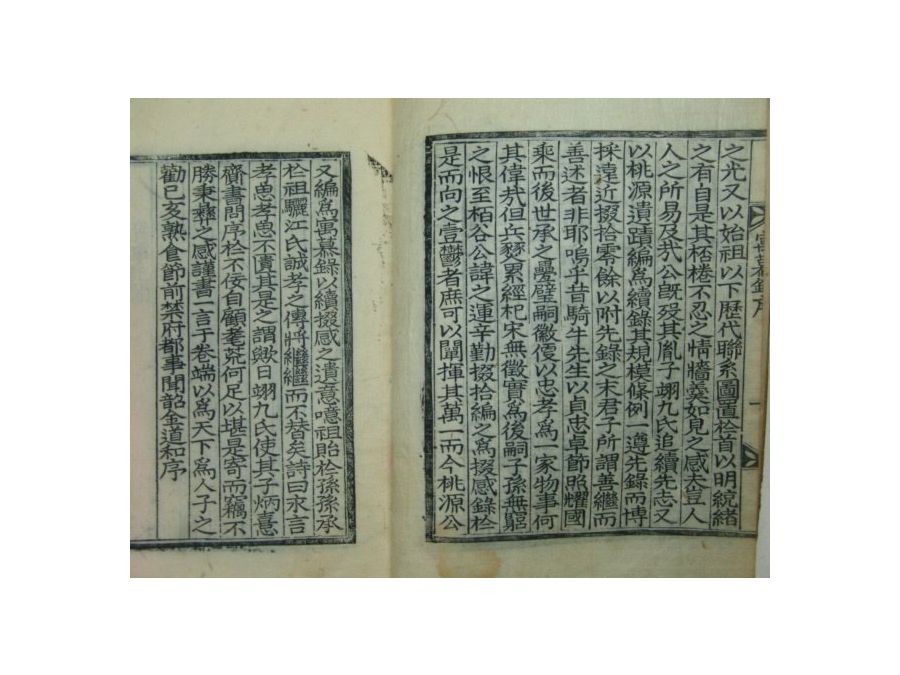 之光又以始祖以下歷代聯系圖置於首以明統緖
之有自是其栝棬不忍之情牆羹如見之感夫豈人
人之所易及㢤公旣歿其胤子翊九氏追續先志又
以桃源遺蹟編爲續錄其規模條例一遵先錄而博
採遠近掇拾零餘以附先錄之末君子所謂善繼而
善述者非耶嗚乎昔騎牛先生以貞忠卓節照耀國
乘而後世承之疊璧嗣徽優以忠孝爲一家物事何
其偉㢤但兵燹累經杞宋無徵實爲後嗣子孫無窮
之恨至栢谷公諱之運辛勤掇拾編之爲掇感錄於
是而向之壹鬱者庶可以闡揮其萬一而今桃源公
又編爲寓慕錄以續掇感之遺意噫祖貽於孫孫承
於祖驪江氏誠孝之傳將繼繼而不替矣詩曰永言
孝思孝思不匱其是之謂歟日翊九氏使其子炳憙
齎書問序於不佞自顧耄荒何足以堪是寄而竊不
勝秉彝之感謹書一言于卷端以爲天下爲人子之
勸已亥熟食節前禁府都事聞韶金道和序
寓慕錄序
一